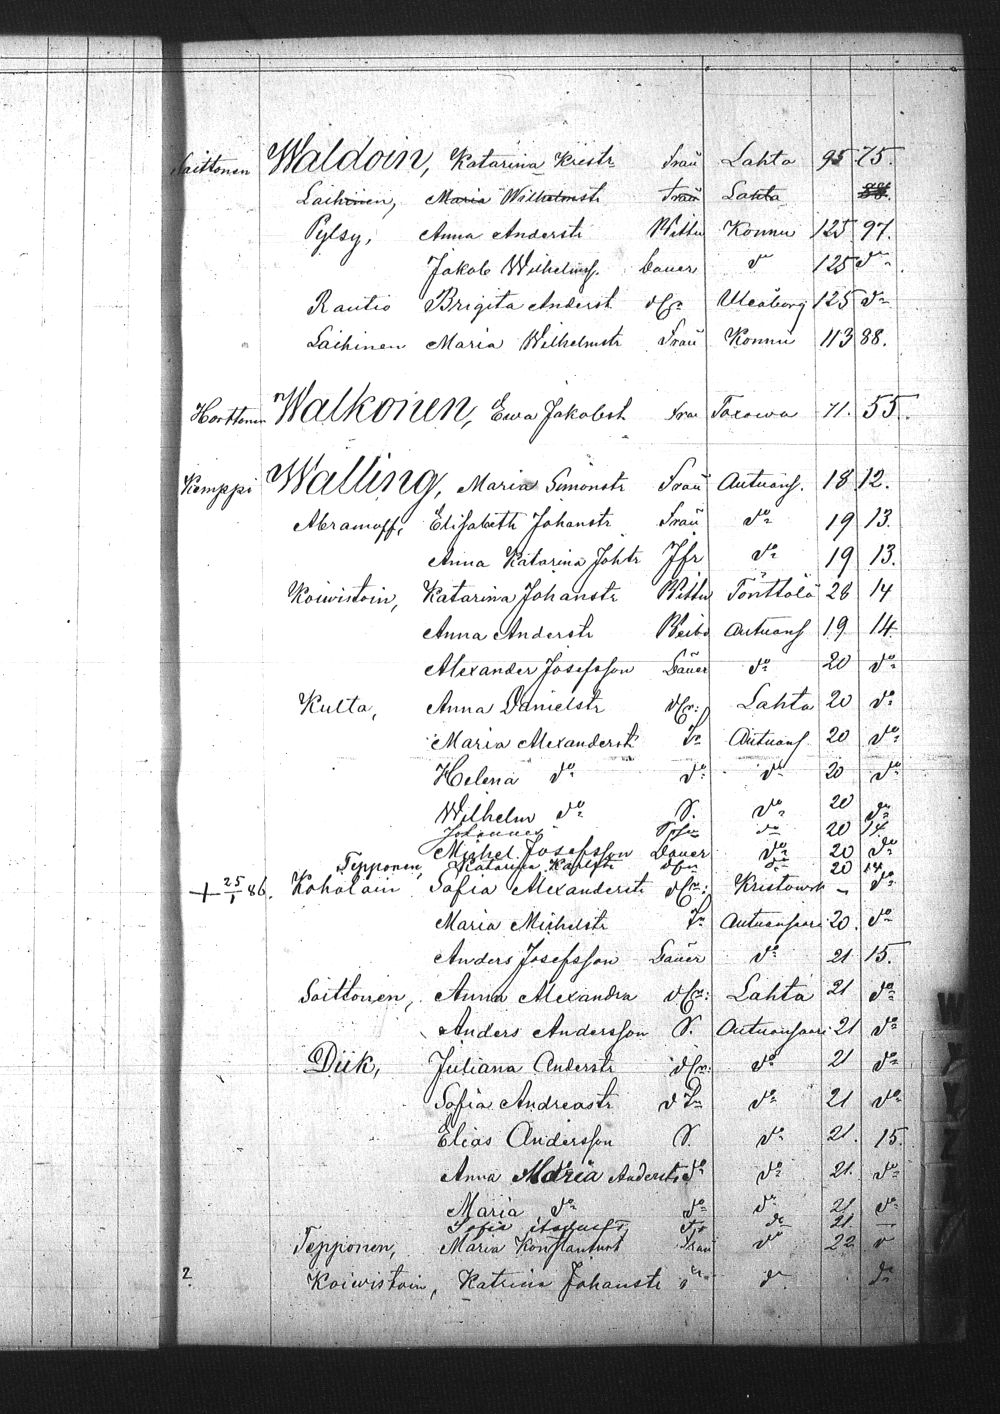 Saittonen Waldoin, Katarina Kristr Frau Lahta 95 75.
Laihinen, Maria Wilhelmstr Frau Lahta 88.
Pylsy, Anna Anderstr Wittw Konnu 125 97.
Jakob Wilhelmsf. Bauer do 125 do
Rautio Brigita Anderst dfr Uleåborg 125 do
Laihinen Maria Wilhelmstr Frau Konnu 113 88.
Horttonen Walkonen, Ewa Jakobstr Fra Toxowa 71. 55.
Kemppi Walling, Maria Simonstr Frau Autuansf. 18 12.
Abramoff, Elisabeth Johanstr Frau do 19 13.
Anna Katarina Johtr Jfr do 19 13.
Koiwistoin, Katarina Johanstr Wittw Tönttölä 28 14
Anna Anderstr Weib Autuans 19 14
Alexander Josefsson Bauer do 20 do
Kulta, Anna Danielstr dfr: Lahta 20 do
Maria Alexanderstr Tr Autuans 20 do
Helena do do do 20 do
Wilhelm do S. do 20 do
Johannes do 20 14
Michel Josefsson Bauer do 20 do
Tepponen, Katarina Karlstr dfr do 20 14
+ 25/1 86. Koholain Sofia Alexanderstr dfr: Kristowsk – do
Maria Michelstr Tr Autuansaari 20. do
Anders Josefsson Bauer do 21 15.
Soittonen, Anna Alexandra dfr: Lahta 21 do
Anders Andersson S. Autuansaari 21 do
Diik, Juliana Anderstr dfr: do 21 do
Sofia Andreastr d Tr do 21 do
Elias Andersson S. do 21. 15.
Anna Maria Anderstr do do 21. do
Maria do do do 21 do
Sofia do 21. –
Tepponen, Maria Konstantinst Frau do 22
2. Koiwistoin, Katrina Johanstr do do